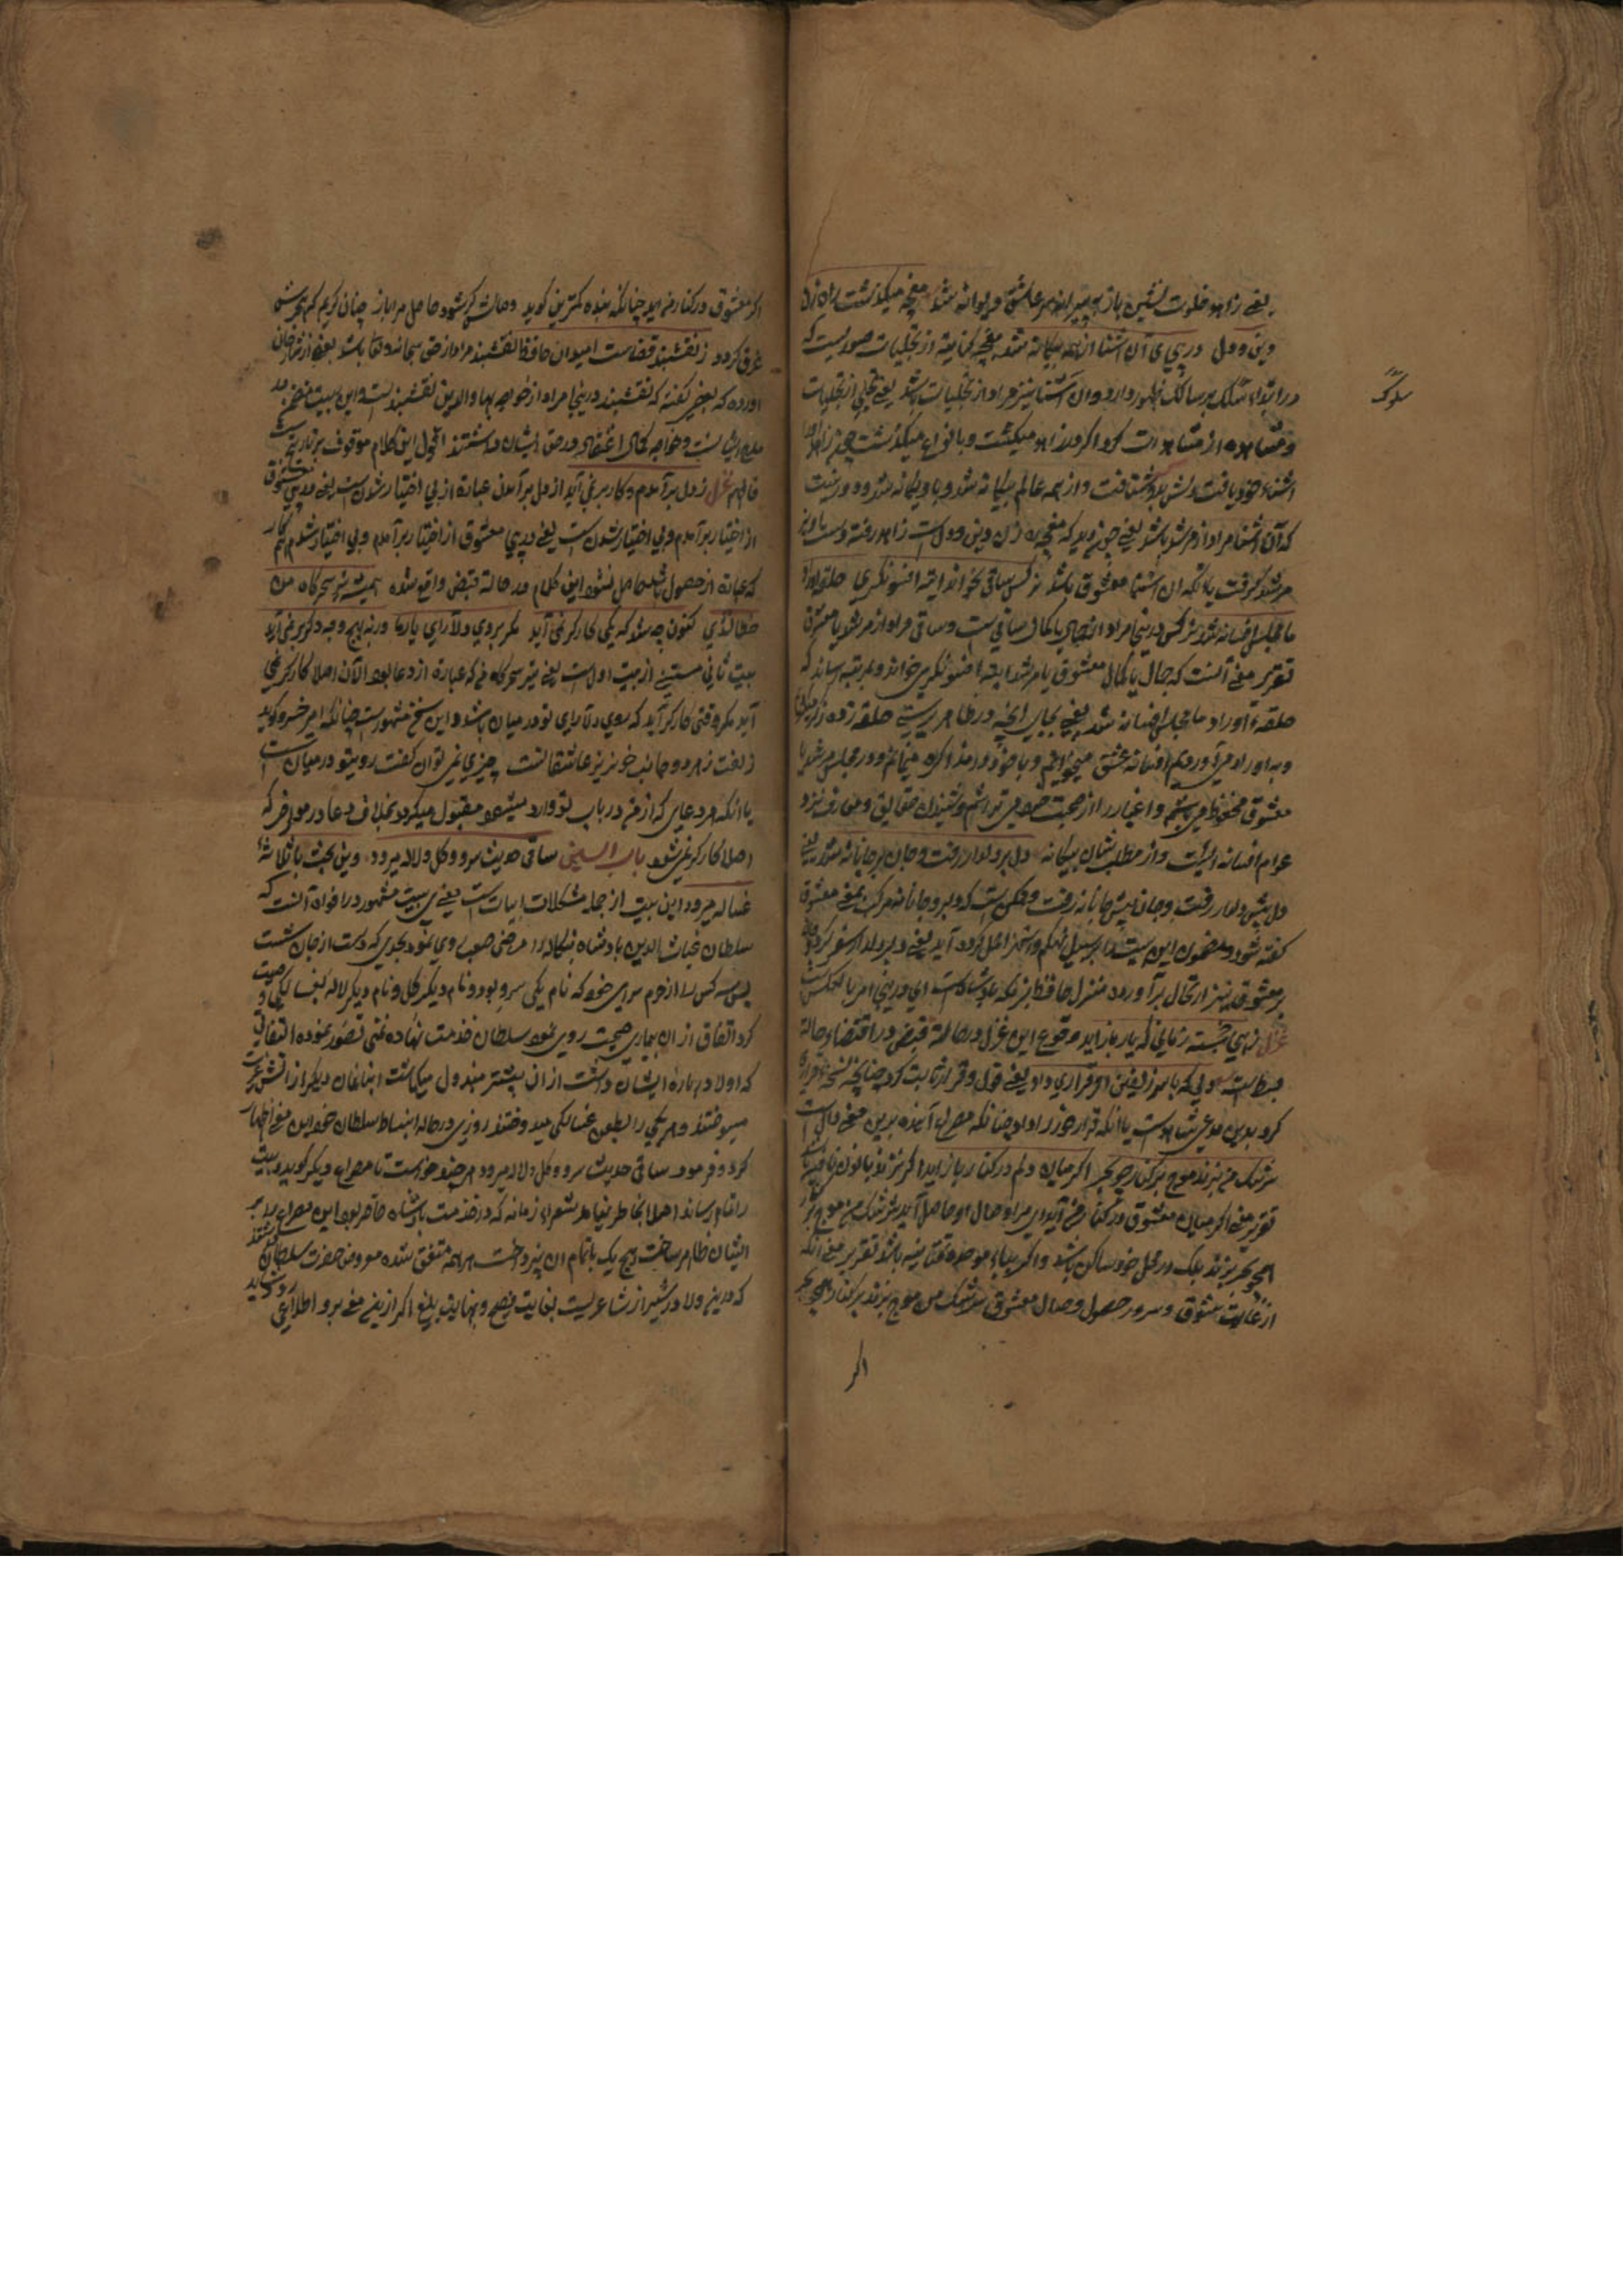 یعنی زاهد خلوت نشین باز به پیرانه سر عاشق و دیوانه شد مغبچه میگذشت راه زن
دین و دل در پی آن آشنا از همه بیگانه شد مغبچه کنایة از تجلیات صوریست که
در ابتداء سلوک بر سالک ظهور دارد و آن آشنا نیز مراد از تجلیات باشد یعنی تجلی از تجلیات
سلوک
و مشاهده از مشاهدات که اکر در زاهد میکشت و بانواع میکذشت چون زاهد
آشناء خود یافت دلش بدو شتافت و از همه عالم بیکانه شد و با و یکانه شد و دور نیست
که آن آشنا مراد از مرشد باشد یعنی چون دید که مغبچه ره زن دین و دل است زاهد رفته دست
مرشد گرفت یا آنکه آن آشنا معشوق باشد نرکس ساقی بخواند آیت افسونکری حلقه اوراد
ما مجلس افسانه شد نرکس درینجا مراد از جمال یا کمال ساقی است و ساقی مراد از مرشد یا معشوق
تقریر معنی آنست که جمال یا کمال معشوق یا مرشد آیت افسونکری خواند و بمرتبه رساند که
حلقه اوراد ما مجلس افسانه شد یعنی بجای آنچه در ظاهر پرستی حلقه زده ذکر میکردیم
و به اوراد می آوردیم افسانه عشق میخوانیم و با خود در مذاکره میمانیم و در مجلس مرشد یا
معشوق محفوظ می باشیم و اغیار را از صحبت خود می تراشیم و شنیدن حقایق و معارف نزد
عوام افسانه ایست و از مطلب شان بیکانه دل بر دلدار رفت و جان بر جانانه شد یعنی
دل پیش دلدار رفت و جان پیش جانانه رفت و ممکن است که دلبر و جانانه مرکب بمعنی معشوق
کفته شود و مضمون این بیت را بر سبیل تهکم و استهزا حمل کرده آید یعنی دلبر دلدار سفر کرد
بر معشوقه نیز ارتحال برآورد منزل حافظ بزمکه پادشاه است ای درینجا امر بالعکس
غزل زهی خجسته زمانی که یار باز آید وقوع این غزل در حالة قبض در اقتضاء حالة
بسط است دلی که با سر زلفین او قراری داد یعنی قول و قرار ثابت کرد چنانچه نسخه قرار
کرد بدین مدعی شاهد است یا آنکه قرار خود را داد چنانکه مصراع آینده برین معنی دال است
سرشک من نزند موج بر کنار چو بحر اکر میان ویم در کنار باز آید اکر نزند بانون نافیه باشد
تقریر معنی اکر میان معشوق در کنار من آید ای مرا وصال او حاصل آید سرشک من موج بر
همچو بحر نزند بلک در محل خود ساکن باشد و اکر بباء موحده تحتانیه باشد تقریر معنی آنکه
از غایت شوق و سرور حصول وصال معشوق سرشک من موج بزند بر کنار همچو بحر
اکر
اکر معشوق در کنارم آید چنانکه بنده کمترین کوید وصالش کر شود حاصل مرا باز چنان کریم که بحرش
غرق کردد ز نقشبند قضاست امید آن حافظ نقشبند مراد از حق سبحانه و تعالی باشد بعضی از شارحان
آورده که بعضی کفته که نقشبند درینجا مراد از خواجه بهاء الدین نقشبند است و این بیت متضمن
مدح ایشانست و خواجه کمال اعتقادی در حق ایشان داشتند اقول این کلام موقوف بر تاریخست
فافهم غزل ز دل برآمدم و کار بر نمی آید از دل برآمدن عبارة از بی اختیار شدن است یعنی در پی معشوق
از اختیار برآمدم و بی اختیار شدن است یعنی در پی معشوق از اختیار برآمدم و بی اختیار شدم هم کار
که عبارة از حصول باشد حاصل نشود این کلام در حالة قبض واقع شده همیشه تیر سحرکاه من
خطا نشدی کنون چه شد که یکی کارکر نمی آید مکر بروی دلآرای یار ما ورنه بهیچ وجه دکر بر نمی آید
بیت ثانی مستثنی از بیت اول است یعنی تیر سحرکاه من که عبارة از دعا بود الآن اصلا کارکر نمی
آید مکر وقتی کارکر آید که روی دلآرای تو در میان باشد و این سخن مشهور است چنانکه امیر خسرو کوید
زلفت ز هر دو جانب خونریز عاشقانست چیزی نمی توان کفت روی تو در میان است
یا آنکه هر دعای که از من در باب تو وارد میشود مقبول میکردد بخلاف دعا در مواضع دیکر که
اصلا کارکر نمی شود باب السین ساقی حدیث سرو و کل و لاله میرود وین بحث با ثلاثه
غساله میرود این بیت از جمله مشکلات ابیات است معنی این بیت مشهور در افواه آنست که
سلطان غیاث الدین پادشاه بنکاله را مرضی صعب روی نمود بحدی که دست از جان شست
پس سه کس را از حرم سرای خود که نام یکی سرو بود و نام دیکر کل و نام دیکر لاله بغسالکی وصیت
کرد اتفاقا از آن بیماری صحت روی نمود سلطان خدمت نهاده
که اولا در باره ایشان داشت از آن بیشتر مبذول میکاشت ابناغان دیکر از آتش غیرت
میسوختند و هر یکی را بطعن غسالکی میدوختند روزی در حاله انبساط سلطان خود این معنی اظهار
کرد و فرمود ساقی حدیث سرو و کل و لاله میرود هر چند خواست تا مصراع دیکر کوید و بیت
را تمام رساند اصلا بخاطر نیامد شعراء زمانه که در خدمت پادشاه حاضر بود این مصراع را بر
ایشان ظاهر ساخت هیچ یک باتمام آن نپرداخت همه متفق شده معروض حضرت سلطان داشتند
که درین ولا در شیراز شاعریست بغایت فصیح و بنهایت بلیغ اکر ازین معنی برو اطلاعی